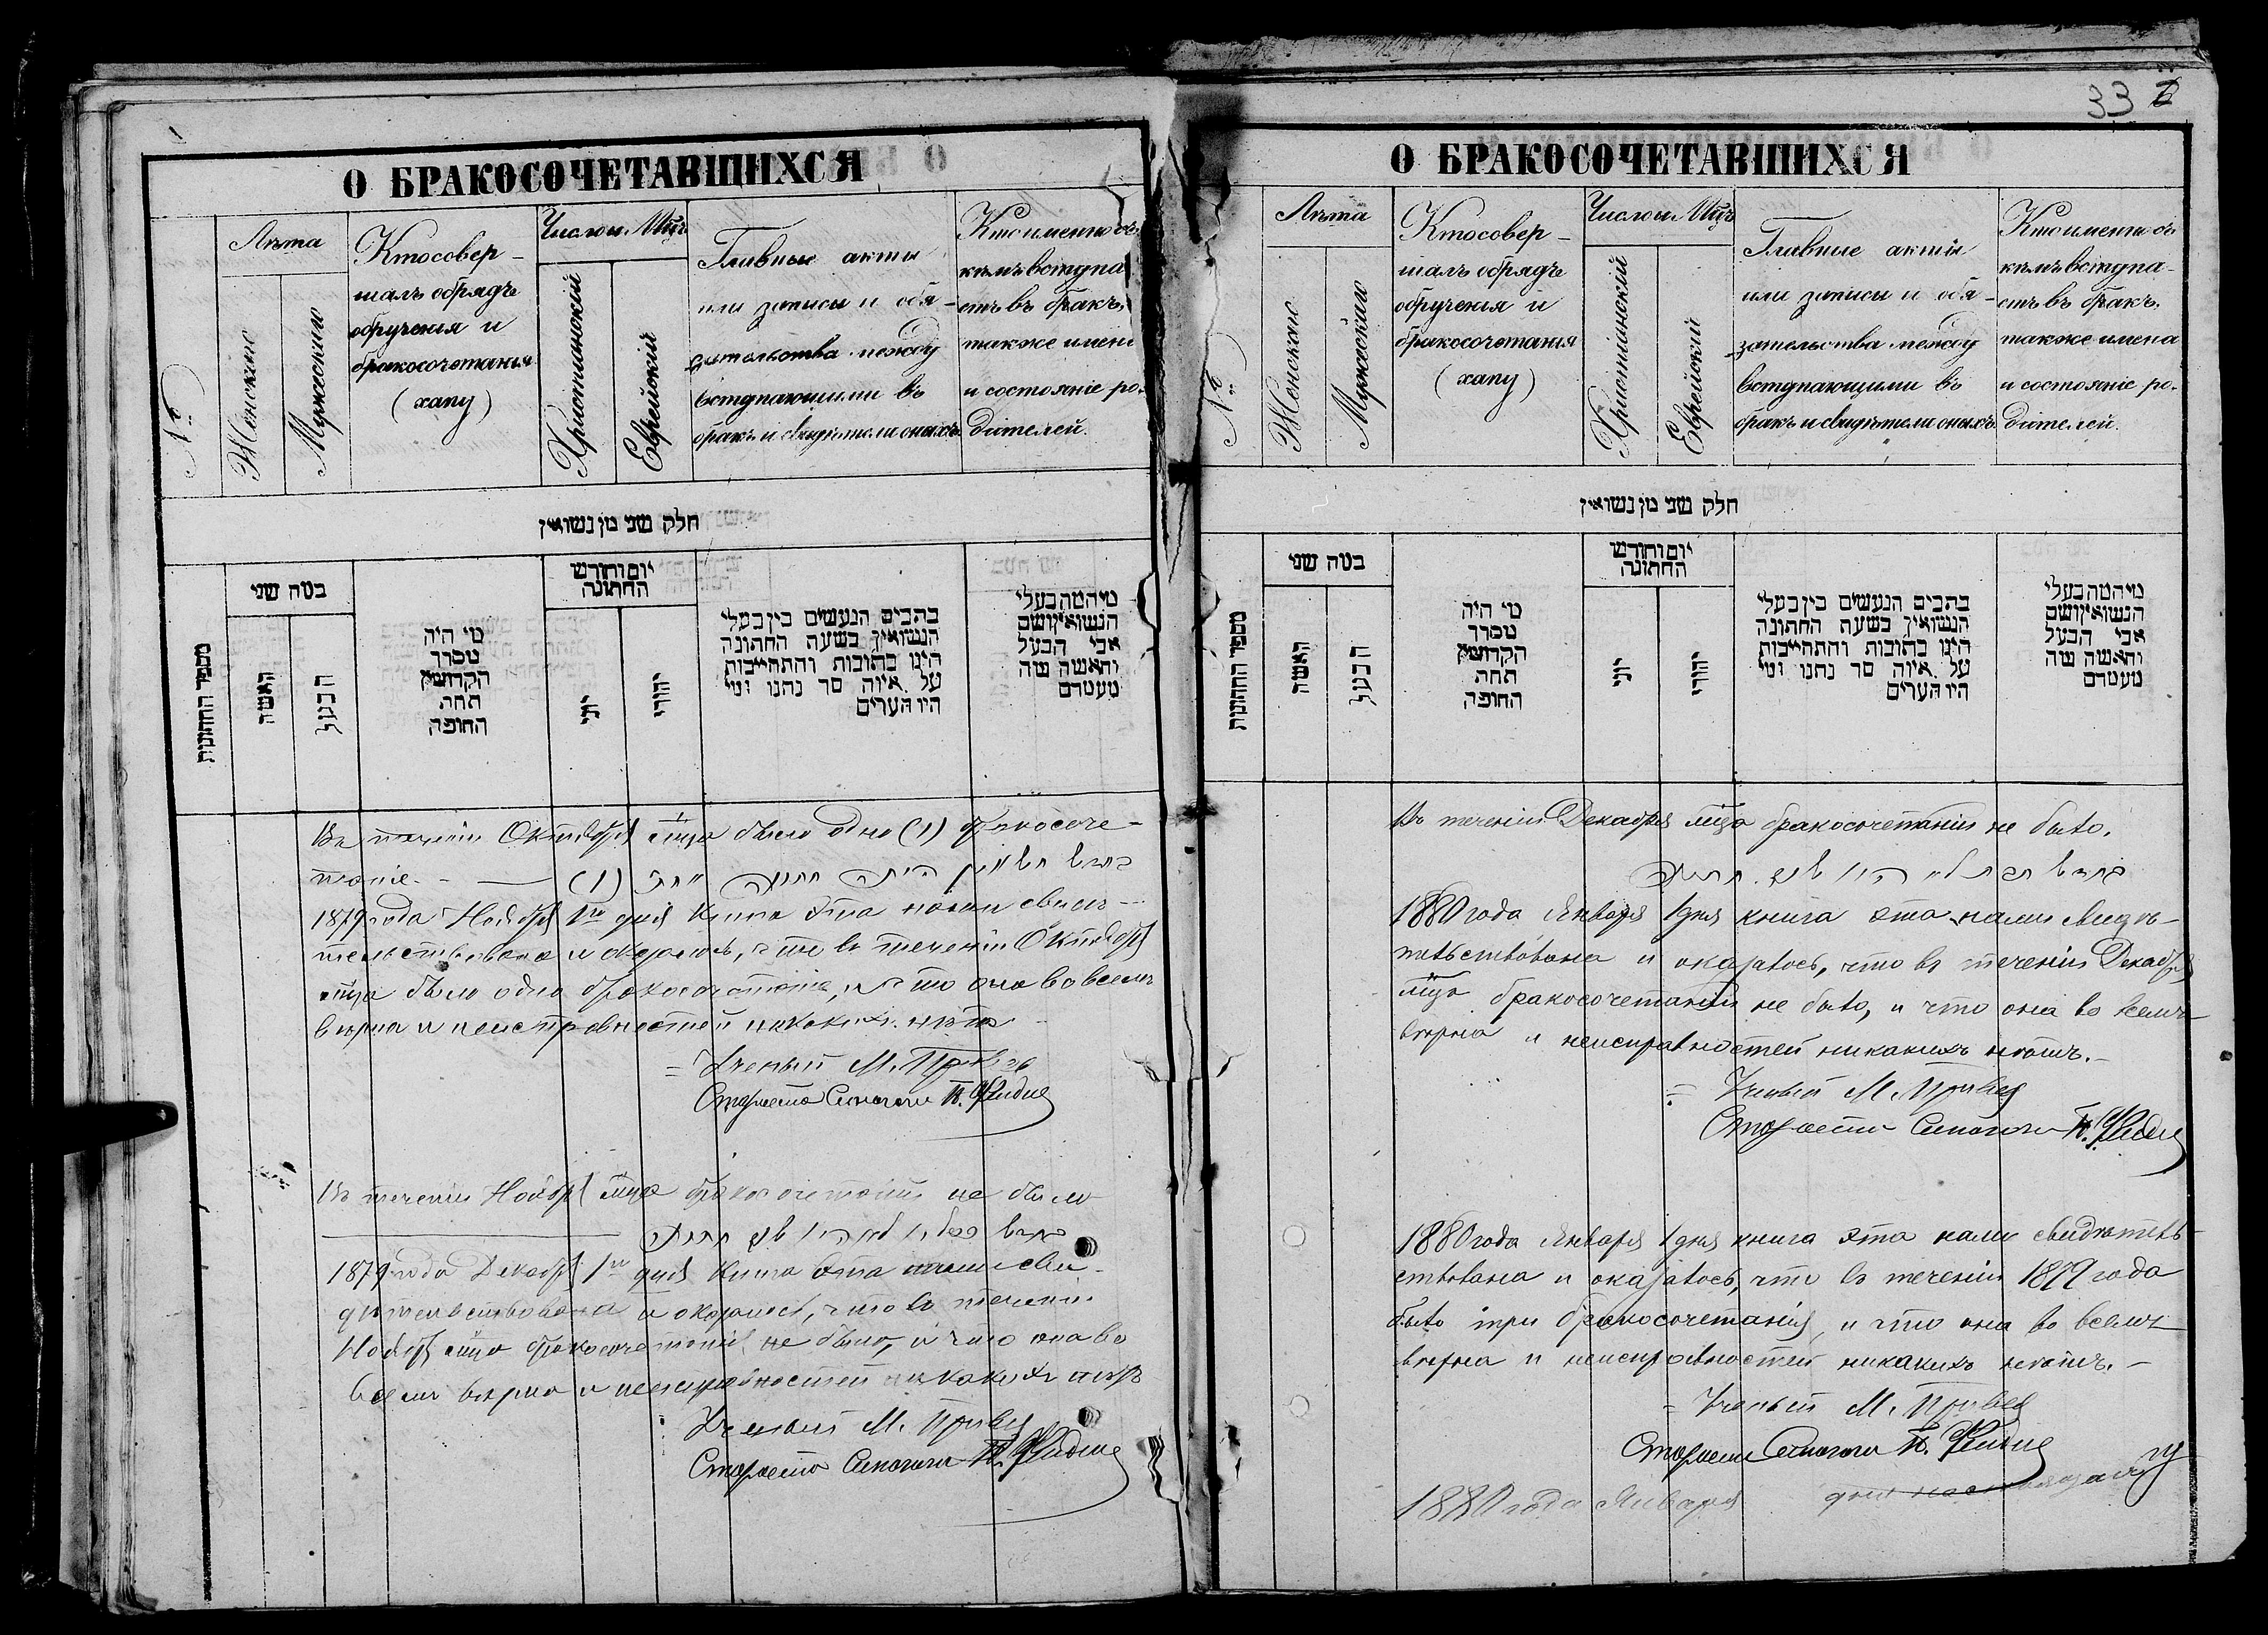 33
О БРАКОСОЧЕТАВШИХСЯ
№
Лѣта
Женскаго
Мужескаго
Кто совер-
шалъ обрядъ
обрученія и
бракосочетанія
(хапу)
Число и Мцъ
Христіанскій
Еврейскій
Главные акты
или записы и обя-
зательства между
вступающими въ
бракъ и свидѣтели оныхъ
Кто именно съ
кѣмъ вступа
етъ въ бракъ,
также имена
и состояніе ро-
дителей.
חלק שני מן נשואין
מספר החתונות
כמה שני
האשה
הבעל
מי היה
מסדר
הקדושין
תחת
החופה
יום וחודש
החתונה
יוני
יהודי
כתבים הנעשים בין בעלי
הנשואין בשעת החתונה
היינו כתובות והתחייבות
על איזה סך נתנו ומי
היו העדים
מי המה בעלי
הנשואין ושם
אבי הבעל
והאשה מה
מעמדם
Въ теченіи Октября мца было одно (1) бракосоче-
таніе. -
1879 года Ноября 1го дня Книга эта нами свидѣ-
тельствована и оказалось, что въ теченіи Октября
мца было одно бракосочетаніе, и что она во всемъ
вѣрна и неисправностей никакихъ нѣтъ
= Ученый М.
Староста Синагоги
Въ теченіи Ноября мца бракосочетаній не было
1879 года Декабря 1го дня Книга эта нами сви-
дѣтельствована и оказалось, что въ теченіи
Ноября мца бракосочетаній не было, и что она во
всемъ вѣрна и неисправностей никакихъ нѣтъ
Ученый М.
Староста Синагоги
О БРАКОСОЧЕТАВШИХСЯ
№
Лѣта
Женскаго
Мужескаго
Кто совер-
шалъ обрядъ
обрученія и
бракосочетанія
(хапу)
Число и Мцъ
Христіанскій
Еврейскій
Главные акты
или записы и обя-
зательства между
вступающими въ
бракъ и свидѣтели оныхъ
Кто именно съ
кѣмъ вступа-
етъ въ бракъ,
также имена
и состояніе ро-
дителей.
חלק שני מן נשואין
מספר החתונות
כמה שני
האשה
הבעל
מי היה
מסדר
הקדושין
תחת
החופה
יום וחודש
החתונה
יוני
יהודי
כתבים הנעשים בין בעלי
הנשואין בשעת החתונה
היינו כתובות והתחייבות
על איזה סך נתנו ומי
היו העדים
מי המה בעלי
הנשואין ושם
אבי הבעל
והאשה מה
מעמדם
Въ теченіи Декабря мца бракосочетанія не было.
1880 года Января 1 дня книга эта нами свидѣ-
тельствована и оказалось, что въ теченіи Декабря
мца бракосочетанія не было, и что она во всемъ
вѣрна и неисправностей никакихъ нѣтъ. -
= Ученый М.
Староста Синагоги
1880 года Января 1 дня книга эта нами свидѣтель-
ствована и оказалось, что въ теченіи 1879 года
было три бракосочетанія, и что она во всемъ
вѣрна и неисправностей никакихъ нѣтъ. -
= Ученый М.
Староста Синагоги
1880 года Января дня